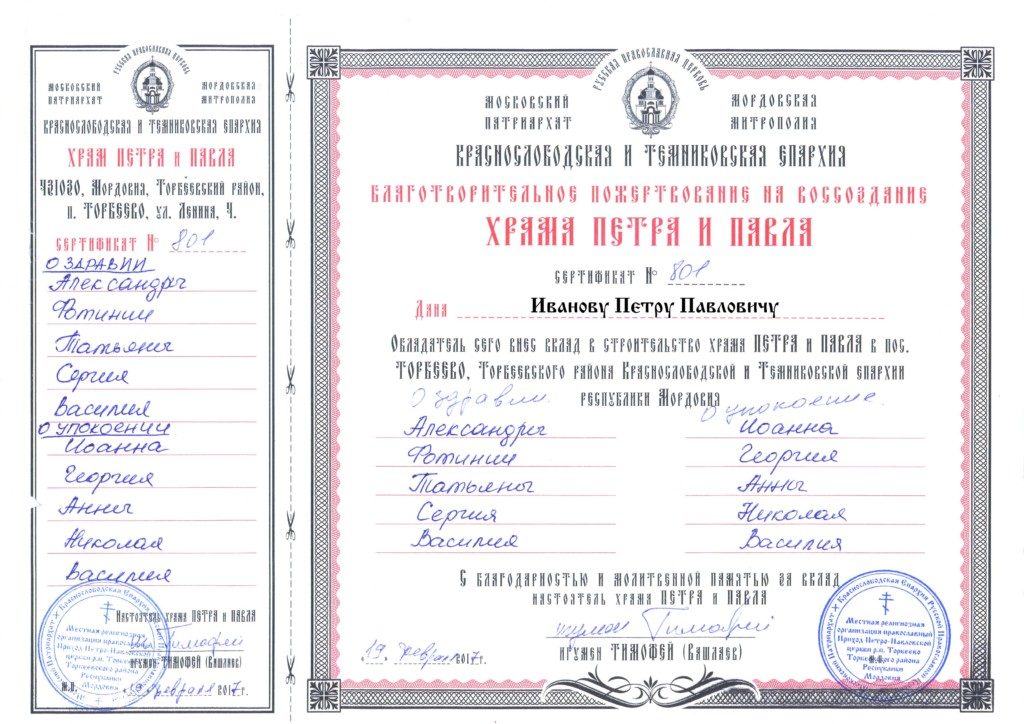 РУССКАЯ ПРАВОСЛАВНАЯ ЦЕРКОВЬ
МОСКОВСКИЙ ПАТРИАРХАТ
МОРДОВСКАЯ МИТРОПОЛИЯ
КРАСНОСЛОБОДСКАЯ И ТЕМНИКОВСКАЯ ЕПАРХИЯ
ХРАМ ПЕТРА И ПАВЛА
431030, Мордовия, Торбеевский район,
п. ТОРБЕЕВО, ул. Ленина, 4.
СЕРТИФИКАТ № 801
О ЗДРАВИИ
Александры
Фотинии
Татьяны
Сергия
Василия
О УПОКОЕНИИ
Иоанна
Георгия
Анны
Николая
Василия
Настоятель храма ПЕТРА и ПАВЛА
Тимофей
игумен ТИМОФЕЙ (Вашлаев)
М.П. 19 февраля 2017г.
РУССКАЯ ПРАВОСЛАВНАЯ ЦЕРКОВЬ
МОСКОВСКИЙ ПАТРИАРХАТ
МОРДОВСКАЯ МИТРОПОЛИЯ
КРАСНОСЛОБОДСКАЯ И ТЕМНИКОВСКАЯ ЕПАРХИЯ
БЛАГОТВОРИТЕЛЬНОЕ ПОЖЕРТВОВАНИЕ НА ВОССОЗДАНИЕ
ХРАМА ПЕТРА И ПАВЛА
СЕРТИФИКАТ № 801
Дана Иванову Петру Павловичу
Обладатель сего внес вклад в строительство храма ПЕТРА и ПАВЛА в пос.
ТОРБЕЕВО, Торбеевского района Краснослободской и Темниковской епархии
республики Мордовия
О здравии. О упокоение.
Александры Иоанна
Фотинии Георгия
Татьяны Анны
Сергия Николая
Василия Василия
С благодарностью и молитвенной памятью за вклад
настоятель храма ПЕТРА и ПАВЛА
игумен Тимофей
19 февраля 2017г. игумен ТИМОФЕЙ (Вашлаев)
Местная религиозная
организация православный
Приход Петро-Павловской
церкви р.п. Торбеево
Торбеевского района
Республики
Мордовия